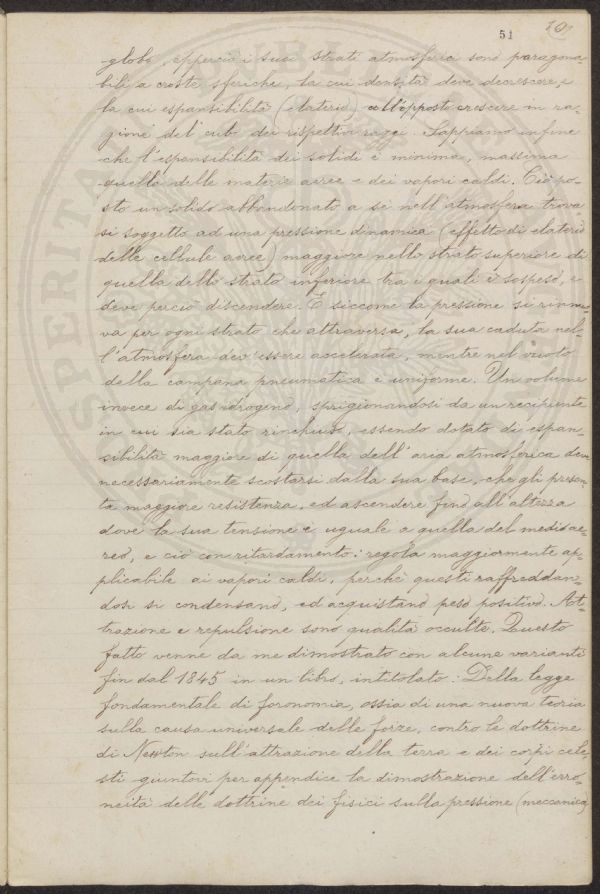 51
globo, epperciò i suoi strati atmosferici sono paragona-
bili a croste sferiche, la cui densità deve decrescere, e
la cui espansibilità (elaterio) all'opposto crescere in ra-
gione del cubo dei rispettivi raggi. Sappiamo infine
che l'espansibilità dei solidi è minima, massima
quella delle materie aeree e dei vapori caldi. Ciò po-
sto un solido abbandonato a sè nell'atmosfera trova-
si soggetto ad una pressione dinamica (effetto di elaterio
delle cellule aeree) maggiore nello strato superiore di
quella dello strato inferiore tra i quali è sospeso, e
deve perciò discendere. E siccome la pressione si rinno-
va per ogni strato che attraversa, la sua caduta nel-
l'atmosfera dev'essere accelerata, mentre nel vuoto
della campana pneumatica è uniforme. Un volume
invece di gas idrogeno, sprigionandosi da un recipiente
in cui sia stato rinchiuso, essendo dotato di espan-
sibilità maggiore di quella dell'aria atmosferica deve
necessariamente scostarsi dalla sua base, che gli presen-
ta maggiore resistenza, ed ascendere fino all'altezza
dove la sua tensione è uguale a quella del medio ae-
reo, e ciò con ritardamento: regola maggiormente ap-
plicabile ai vapori caldi, perchè questi raffreddan-
dosi si condensano, ed acquistano peso positivo. At-
trazione e repulsione sono qualità occulte. Questo
fatto venne da me dimostrato con alcune varianti
fin dal 1845 in un libro, intitolato: Della legge
fondamentale di foronomia, ossia di una nuova teoria
sulla causa universale delle forze, contro le dottrine
di Newton sull'attrazione della terra e dei corpi cele-
sti giuntovi per appendice la dimostrazione dell'erro-
neità delle dottrine dei fisici sulla pressione (meccanica)